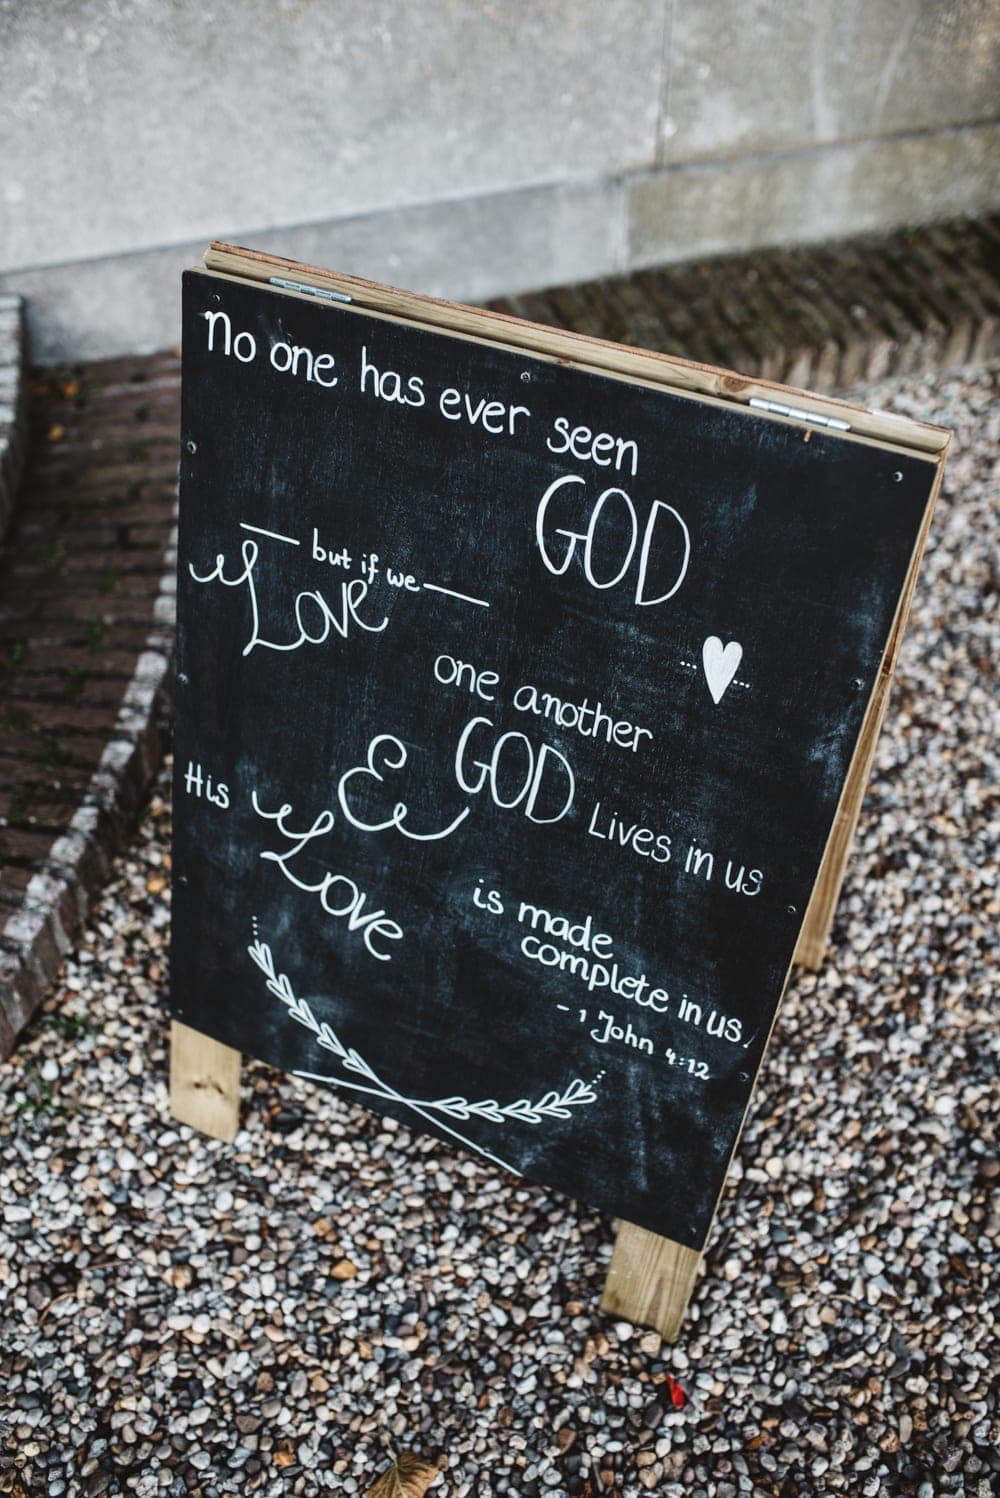 no one has ever seen
GOD
but if we
Love
one another
GOD Lives in us
&
His Love
is made
complete in us,
- 1 John 4:12